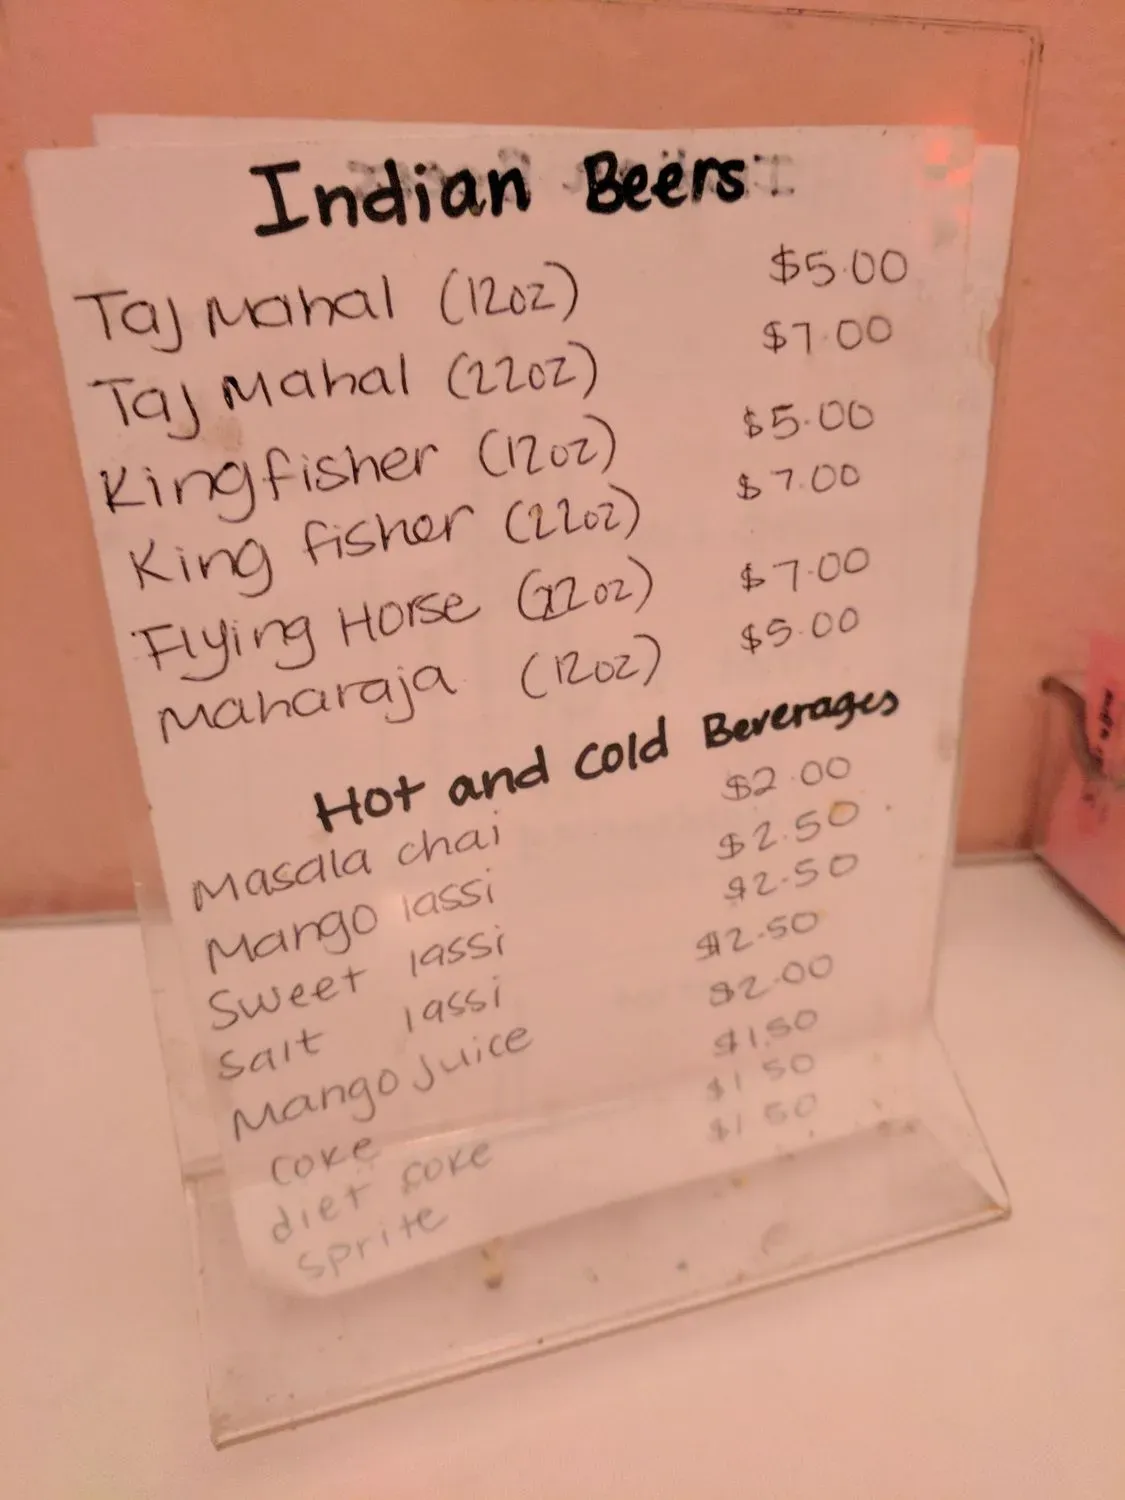 Indian Beers
Taj Mahal (12oz) $5.00
Taj Mahal (22oz) $7.00
Kingfisher (12oz) $5.00
King fisher (22oz) $7.00
Flying Horse (22oz) $7.00
Maharaja (12oz) $5.00
Hot and cold Beverages
Masala chai $2.00
Mango lassi $2.50
Sweet lassi $2.50
Salt lassi $2.50
Mango Juice $2.00
Coke $1.50
diet coke $1.50
Sprite $1.50